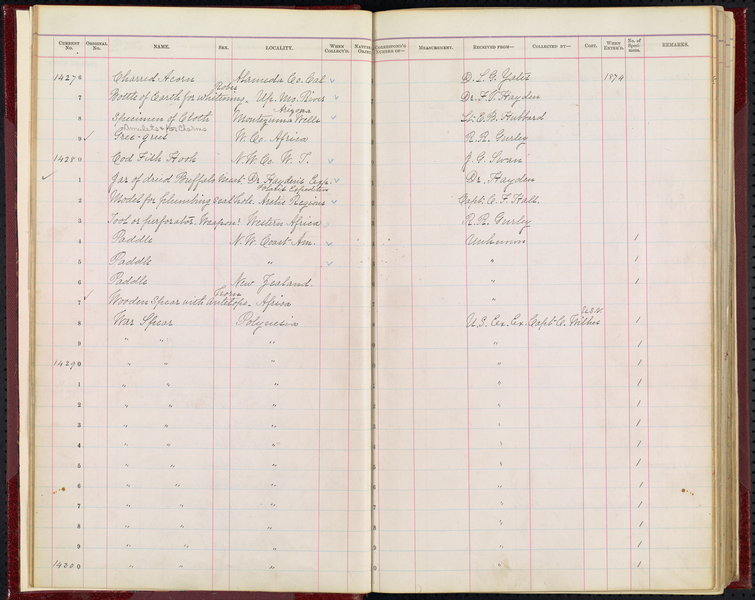 CURRENT No. ORIGINAL No. NAME. SEX. LOCALITY. WHEN COLLECT'D. CORRESPOND'G NUMBER OF— MEASUREMENT. RECEIVED FROM— COLLECTED BY— COST. WHEN ENTER'D. No. of Specimens. REMARKS.
14276 Charred Acorn Alameda Co. Cal D. L. G. Yates 1874
Robes
7 Bottle of Earth for whitening Up. Mo. River Dr. F. V. Hayden
Arizona
8 Specimen of Cloth Montezuma Wells Lt. E. B. Hubbard
Amulets or for Charms
9 Gree-grees W. Co. Africa R. R. Gurley
14280 Cod Fish Hook N. W. Co. W. T. J. G. Swan
1 Jar of dried Buffalo Meat. Dr. Hayden's Exp. Dr. Hayden
Polaris Expedition
2 Model for plumbing seal hole. Arctic Regions Capt. C. F. Hall
3 Tool or perforator. Weapon? Western Africa R. R. Gurley
4 Paddle N. W. Coast Am. Unknown 1
5 Paddle " " 1
6 Paddle New Zealand. " 1
Prong
7 Wooden Spear with Antelope Africa " 1
U.S.N.
8 War Spear Polynesia U. S. Ex. Ex. Capt. C. Wilkes 1
9 " " " " 1
14290 " " " " 1
1 " " " " 1
2 " " " " 1
3 " " " " 1
4 " " " " 1
5 " " " " 1
6 " " " " 1
7 " " " " 1
8 " " " " 1
9 " " " " 1
14300 " " " " 1